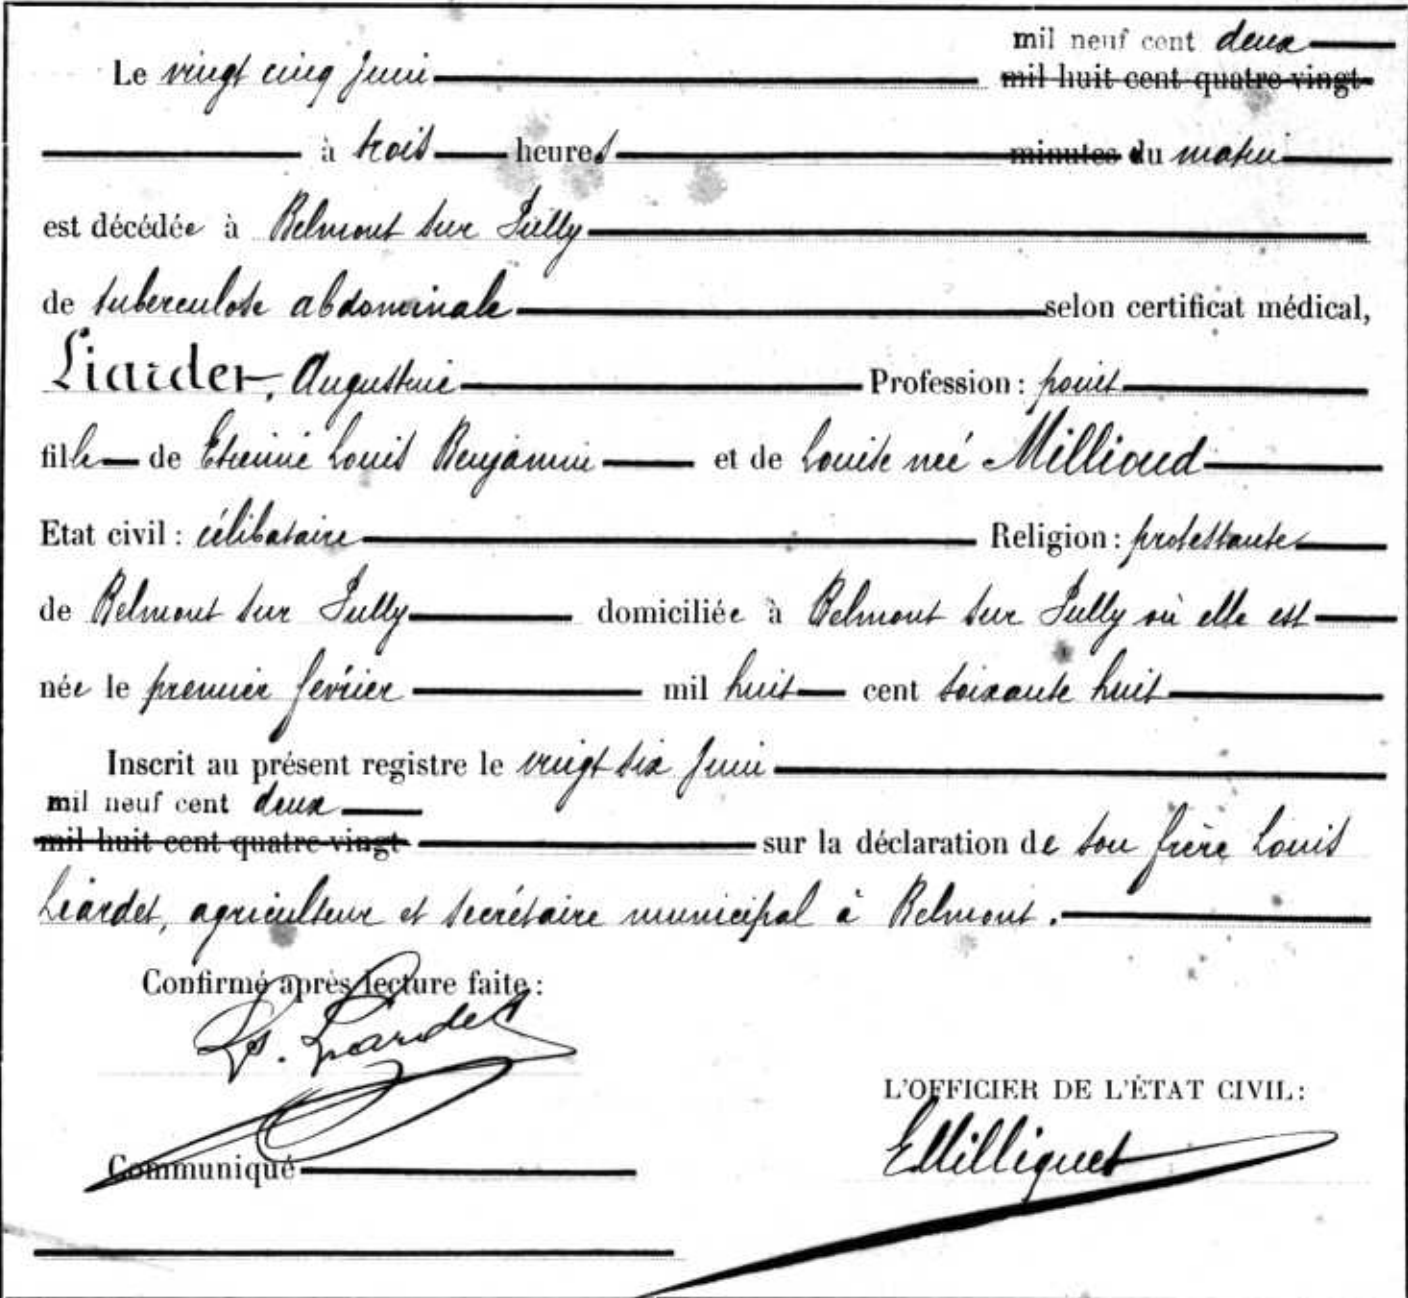 mil neuf cent deux
Le vingt cinq Juin mil huit cent quatre-vingt-
à trois heures minutes du matin
est décédée à Belmont sur Lully
de tuberculose abdominale selon certificat médical,
Liardet, Augustine Profession : point
fille de Etienne Louis Benjamin et de Louise née Millioud
Etat civil : célibataire Religion : protestante
de Belmont sur Lully domiciliée à Belmont sur Lully où elle est
née le premier février mil huit cent soixante huit
Inscrit au présent registre le vingt six Juin
mil neuf cent deux
mil huit cent quatre-vingt sur la déclaration de son frère Louis
Liardet, agriculteur et secrétaire municipal à Belmont.
Confirmé après lecture faite :
Ls. Liardet
L'OFFICIER DE L'ÉTAT CIVIL :
EMilliquet
Communiqué